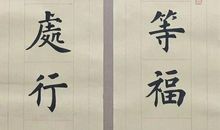 等福
處行